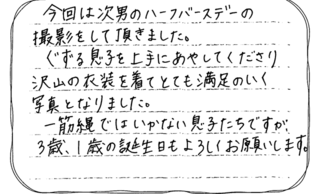 今回は次男のハーフバースデーの
撮影をして頂きました。
ぐずる息子を上手にあやしてくださり
沢山の衣装を着てとても満足のいく
写真となりました。
一筋縄ではいかない息子たちですが、
3歳、1歳の誕生日もよろしくお願いします。